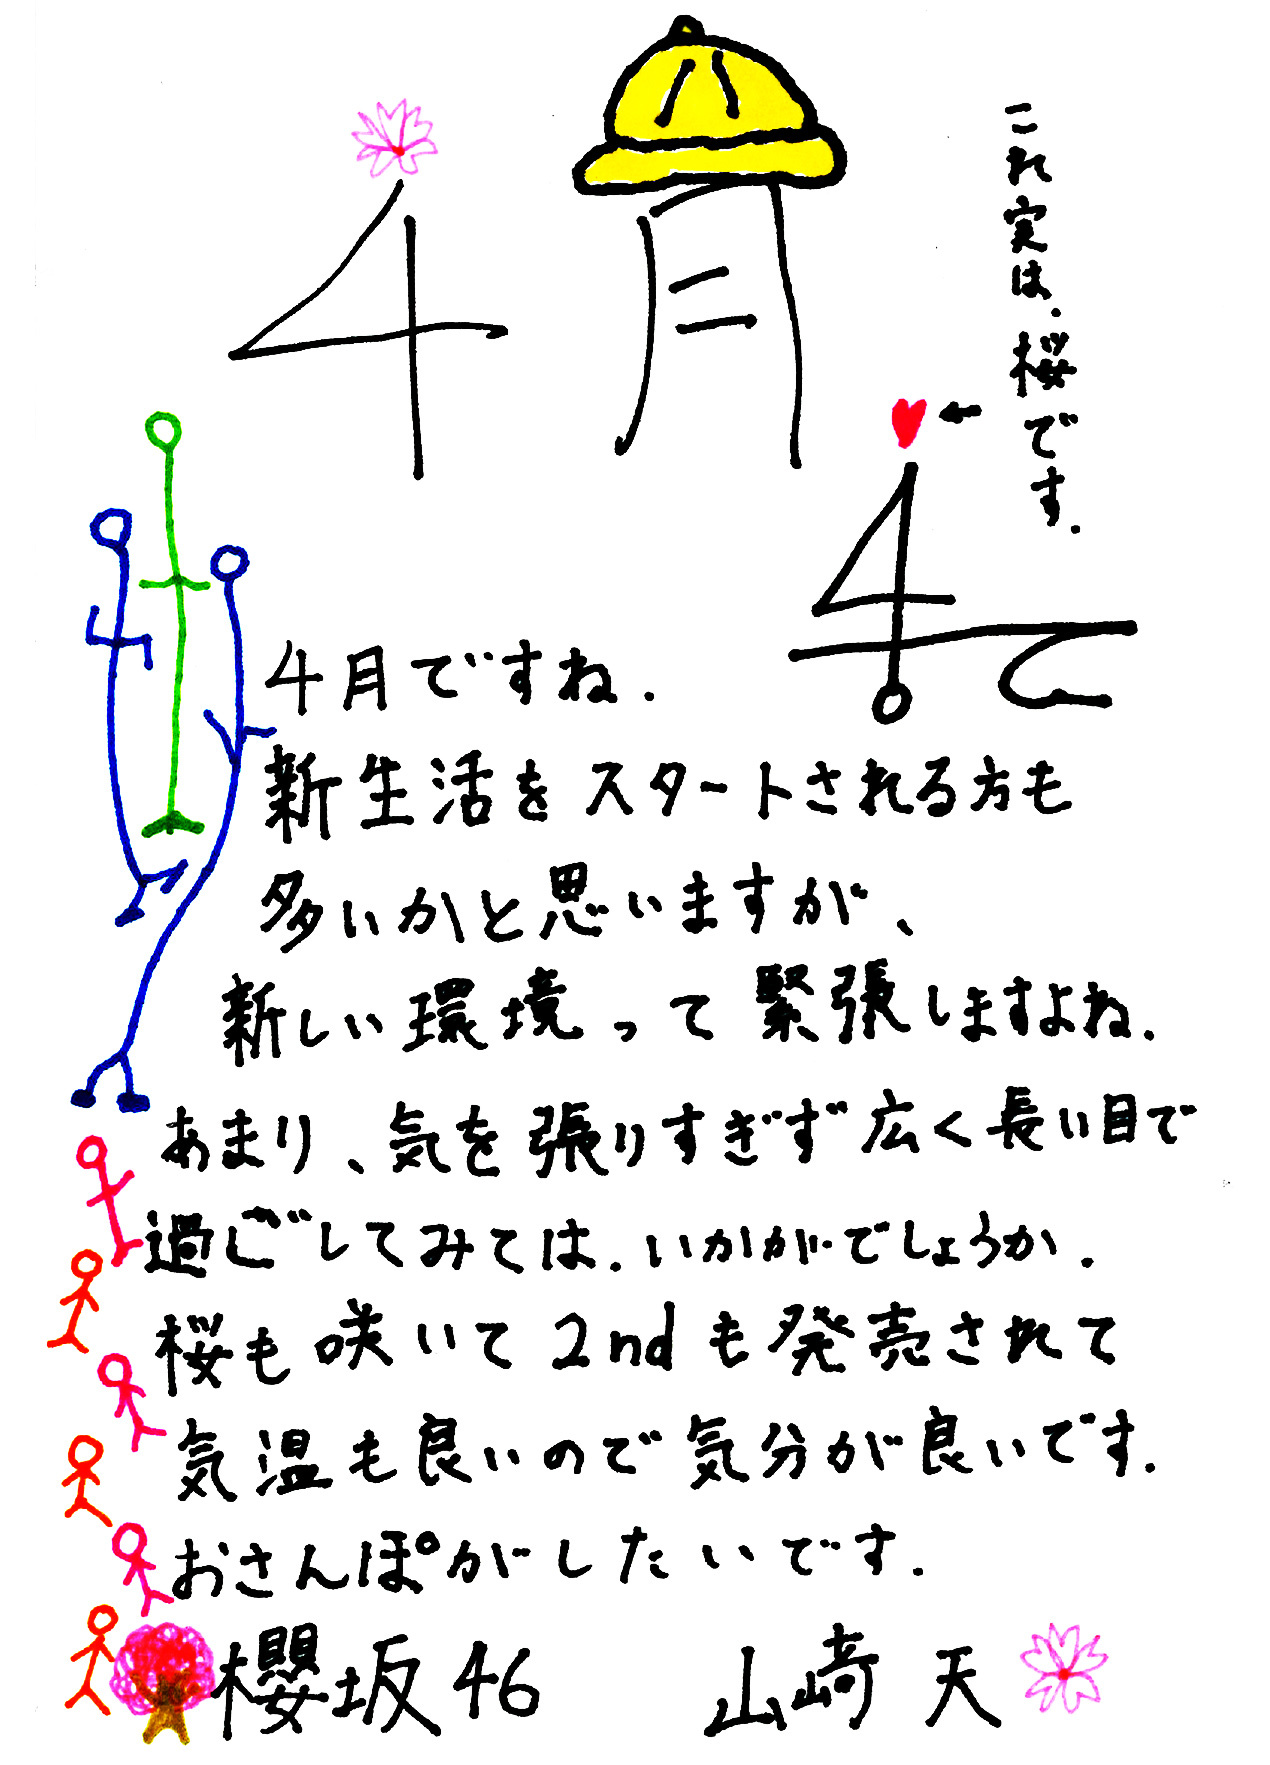 4月
これ実は.桜です.
4月ですね.
新生活をスタートされる方も
多いかと思いますが、
新しい環境って緊張しますよね.
あまり、気を張りすぎず広く長い目で
過ごしてみては.いかがでしょうか.
桜も咲いて2ndも発売されて
気温も良いので気分が良いです.
おさんぽがしたいです.
櫻坂46 山﨑天